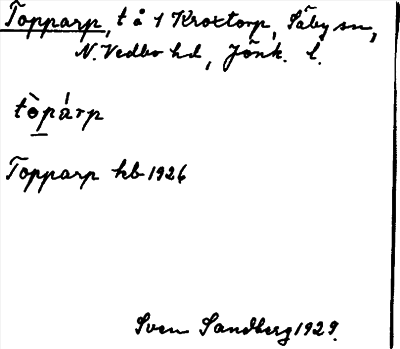 Topparp, t å 1 Kroxtorp, Säby sn,
N. Vedbo hd, Jönk. l.
tòpárp
Topparp hb 1926
Sven Sandberg 1929.